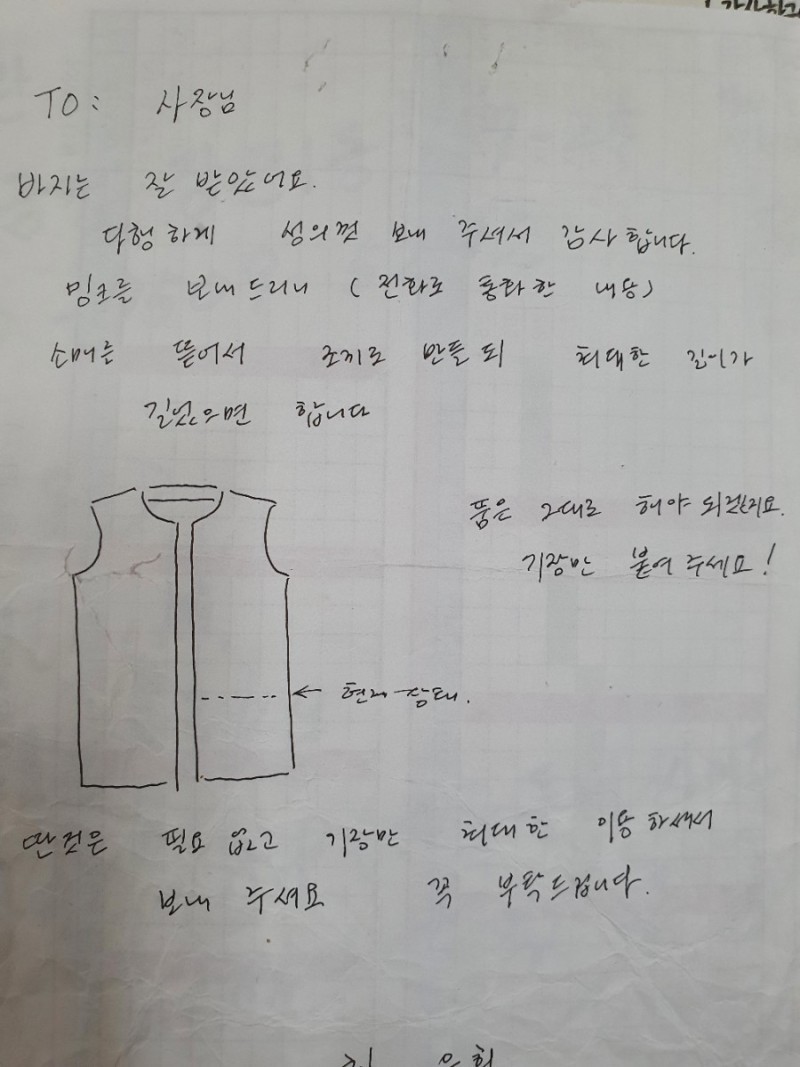 TO: 사장님
바지는 잘 받았어요.
다행하게 성의껏 보내 주셔서 감사합니다.
밍크를 보내드리니 (전화로 통화한 내용)
소매는 뜯어서 조끼로 만들되 최대한 길이가
길었으면 합니다
품은 그대로 해야 되겠지요.
기장만 붙여 주세요!
← 현재 상태.
딴것은 필요 없고 기장만 최대한 이용하셔서
보내 주셔요 꼭 부탁드립니다.